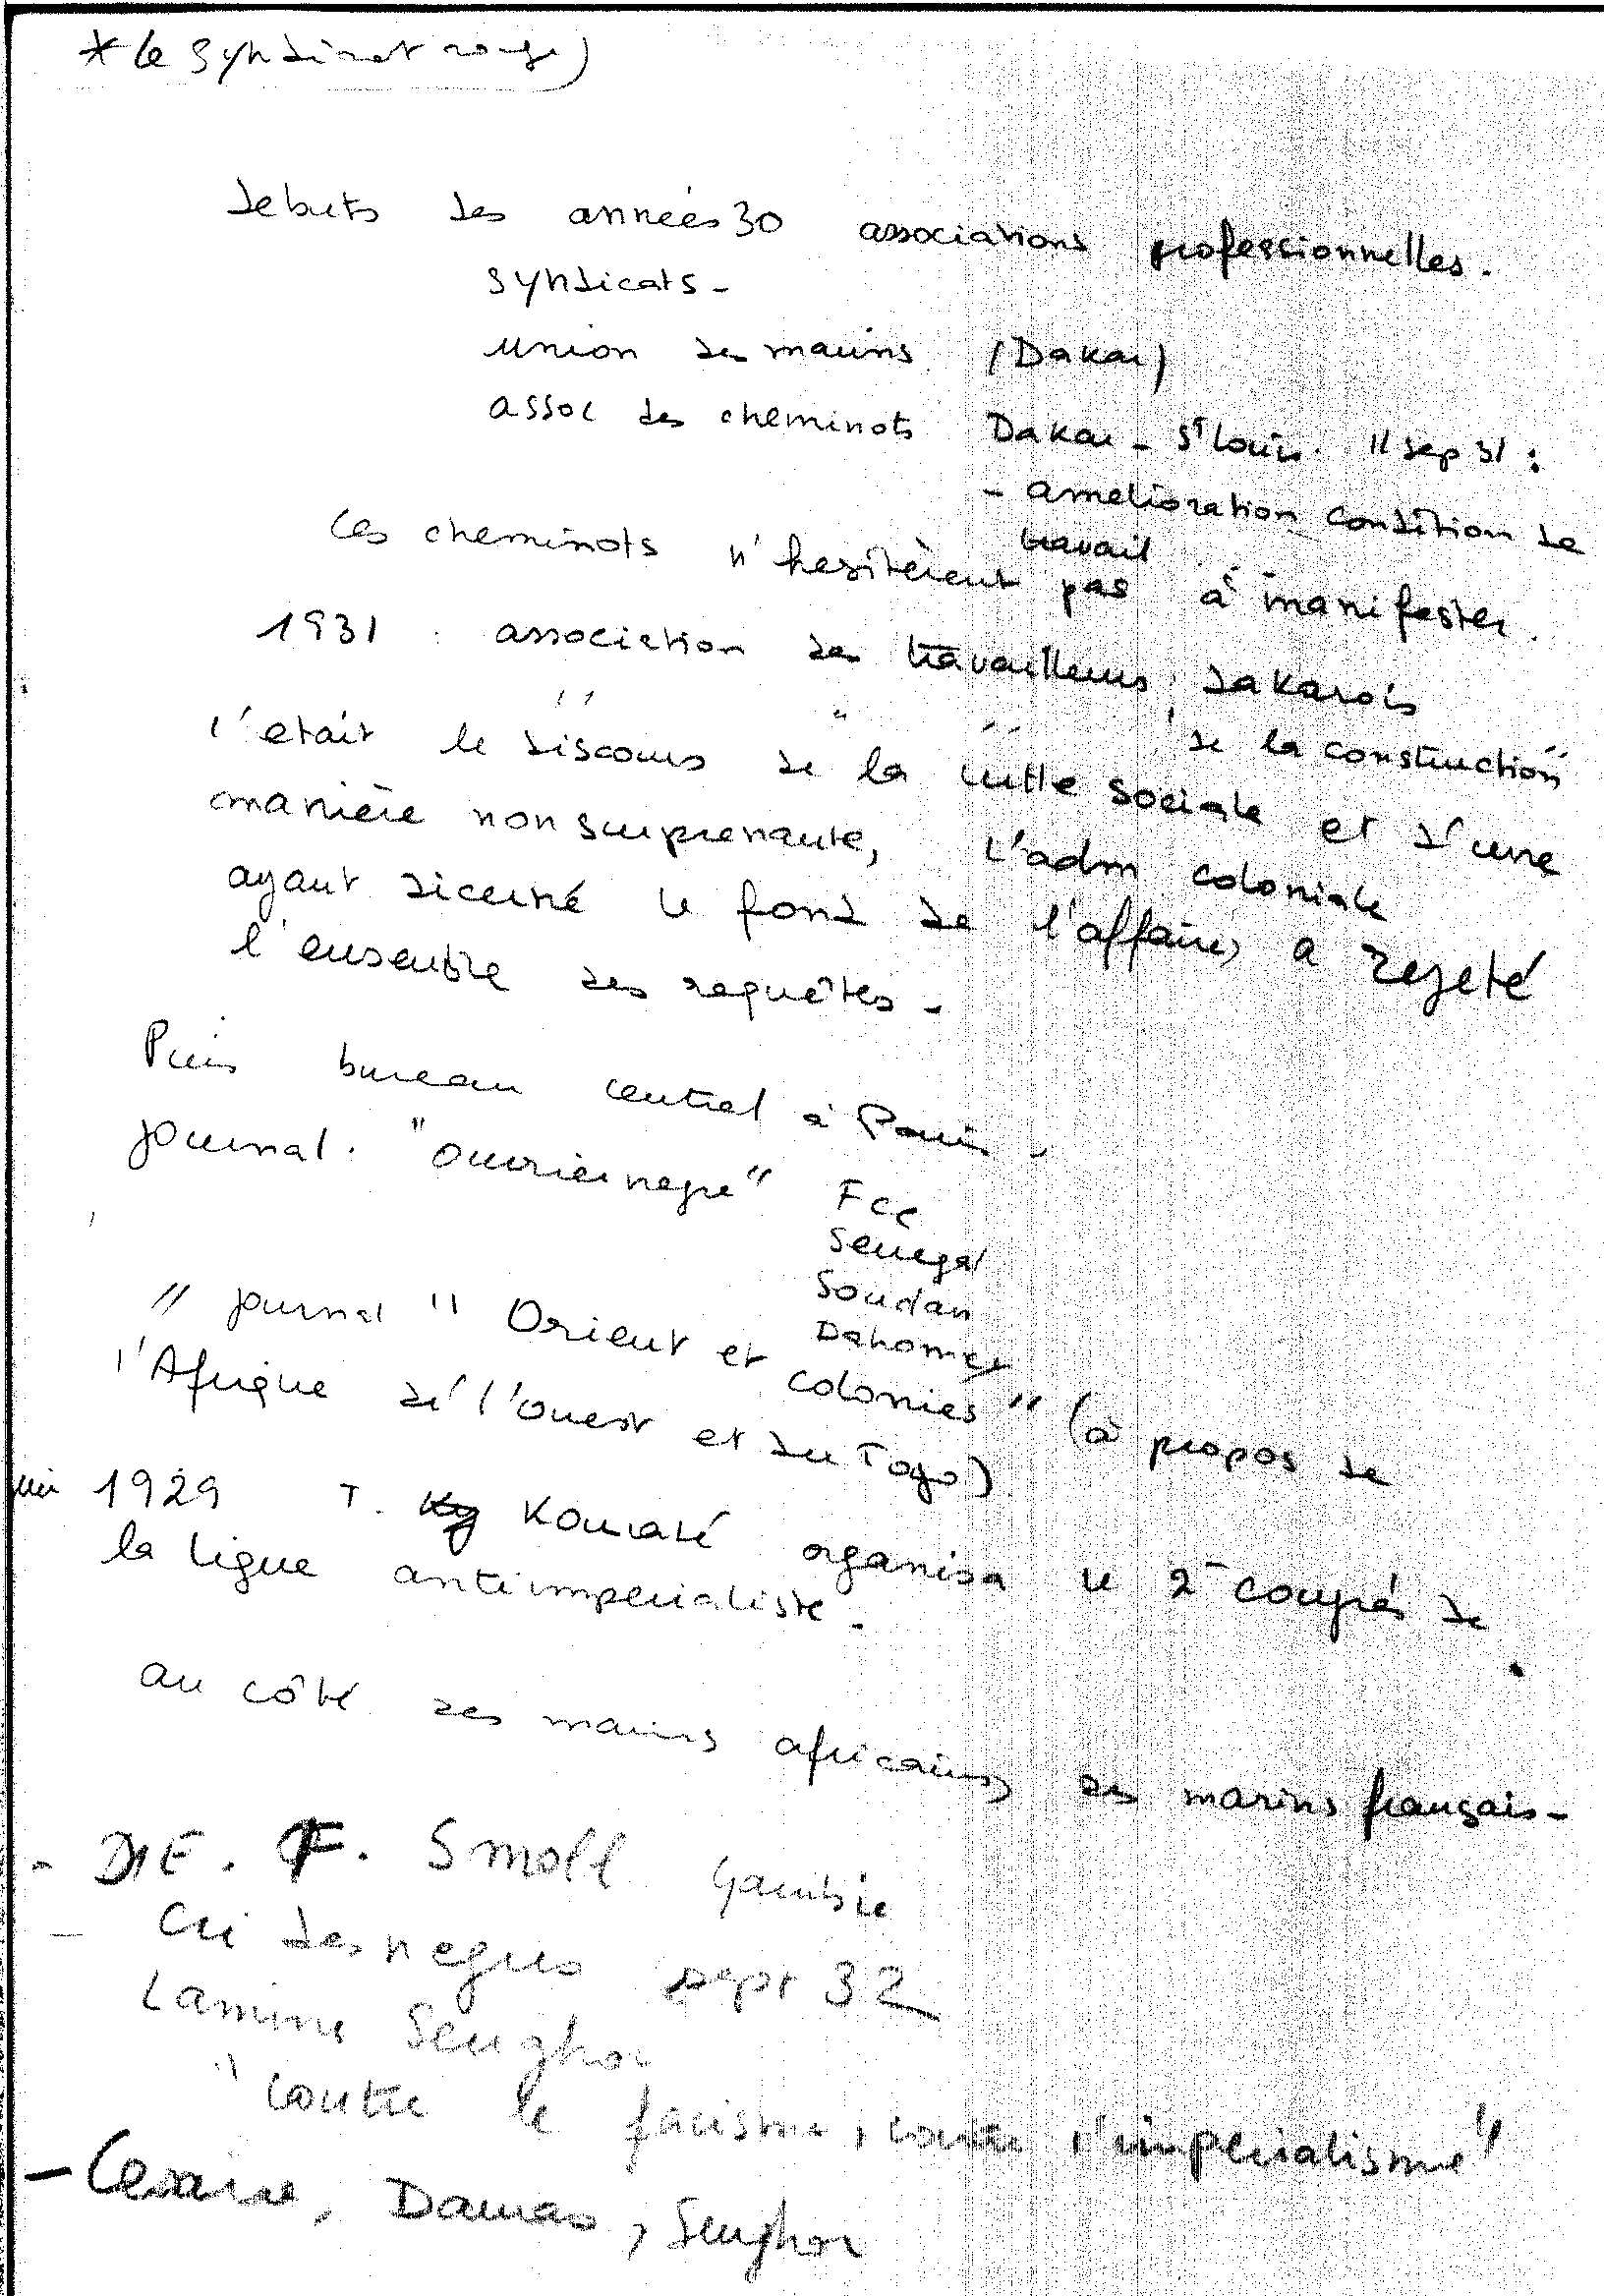 * le syndicat rouge)
debuts des années 30 associations professionnelles.
syndicats -
union des marins (Dakar)
assoc des cheminots Dakar - St Louis. 11 sep 31 :
- amelioration condition de
travail
Les cheminots n'hesitèrent pas à manifester.
1931 : association des travailleurs dakarois
" " " de la construction"
c'etait le discours de la lutte sociale et d'une
manière non surprenante, l'adm coloniale
ayant dicerné le fond de l'affaire, a rejeté
l'ensemble des requêtes -
Puis bureau central à Paris -
journal. "ouvrier negre" Fcc
Senegal
Soudan
Dahomey
" journal " Orient et colonies" (à propos de
l'Afrique de l'ouest et du Togo)
1929 T. Kouyaté organisa le 2 congrés de
la ligue antiimperialiste -
au côté des marins africains, des marins français -
- E. F. Small Gambie
- Cri des negres sept 32
Lamine Senghor
"contre le facisme, contre l'imperialisme"
- Cesaire, Damas, Senghor